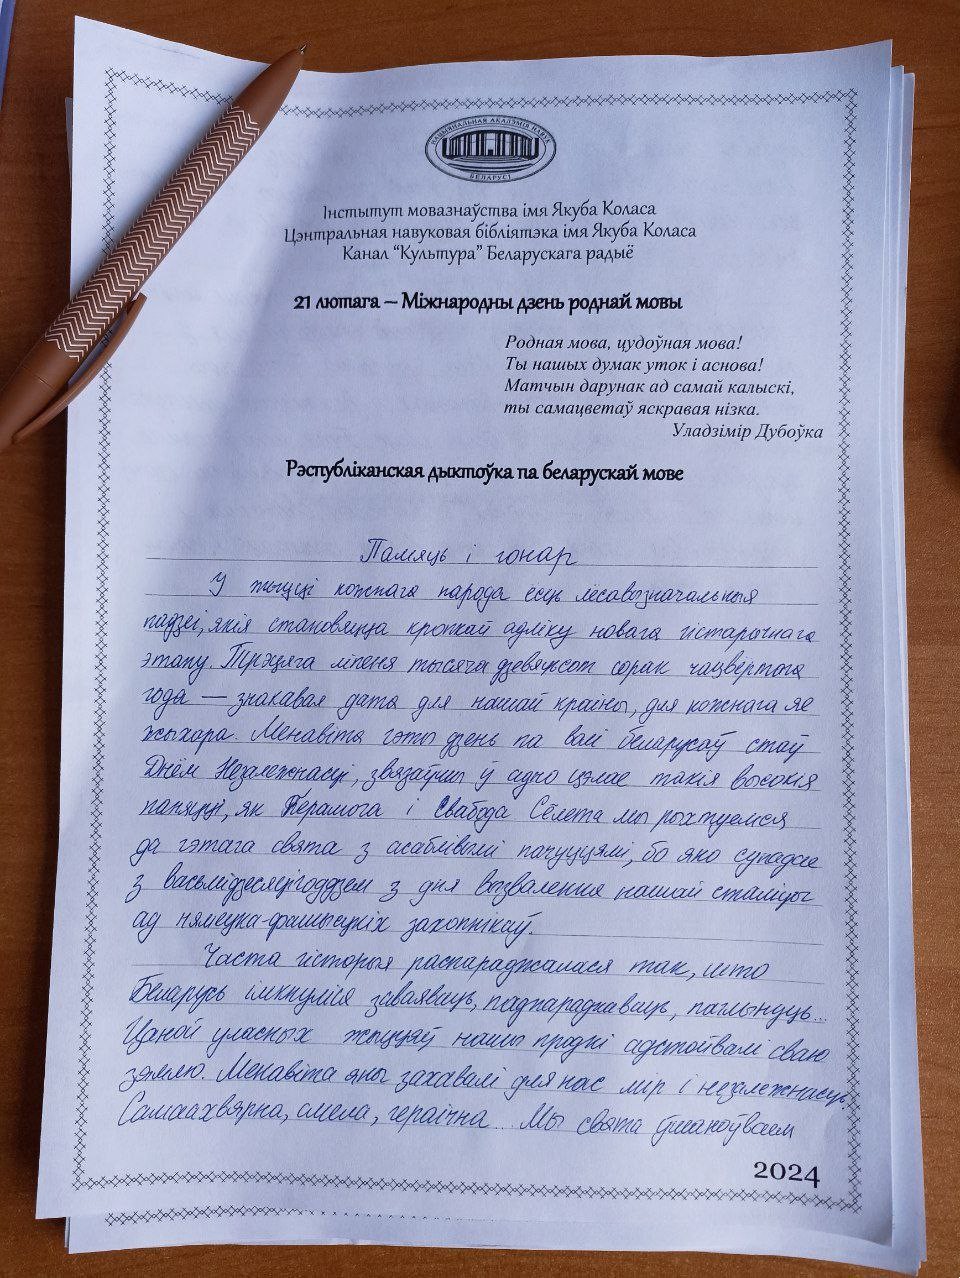 НАЦЫЯНАЛЬНАЯ АКАДЭМІЯ НАВУК
БЕЛАРУСІ
Інстытут мовазнаўства імя Якуба Коласа
Цэнтральная навуковая бібліятэка імя Якуба Коласа
Канал “Культура” Беларускага радыё
21 лютага – Міжнародны дзень роднай мовы
Родная мова, цудоўная мова!
Ты нашых думак уток і аснова!
Матчын дарунак ад самай калыскі,
ты самацветаў яскравая нізка.
Уладзімір Дубоўка
Рэспубліканская дыктоўка па беларускай мове
Памяць і гонар
У жыцці кожнага народа ёсць лёсавызначальныя
падзеі, якія становяцца кропкай адліку новага гістарычнага
этапу. Трэцяга ліпеня тысяча дзевяцьсот сорак чацвёртага
года — знакавая дата для нашай краіны, для кожнага яе
жыхара. Менавіта гэты дзень па волі беларусаў стаў
Днём Незалежнасці, звязаўшы ў адно цэлае такія высокія
паняцці, як Перамога і Свабода. Сёлета мы рыхтуемся
да гэтага свята з асаблівымі пачуццямі, бо яно супадае
з васьмідзесяцігоддзем з дня вызвалення нашай сталіцы
ад нямецка-фашысцкіх захопнікаў.
Часта гісторыя распараджалася так, што
Беларусь імкнуліся заваяваць, падпарадкаваць, паглынуць...
Цаной уласных жыццяў нашы продкі адстойвалі сваю
зямлю. Менавіта яны захавалі для нас мір і незалежнасць.
Самаахвярна, смела, гераічна... Мы свята ўшаноўваем
2024